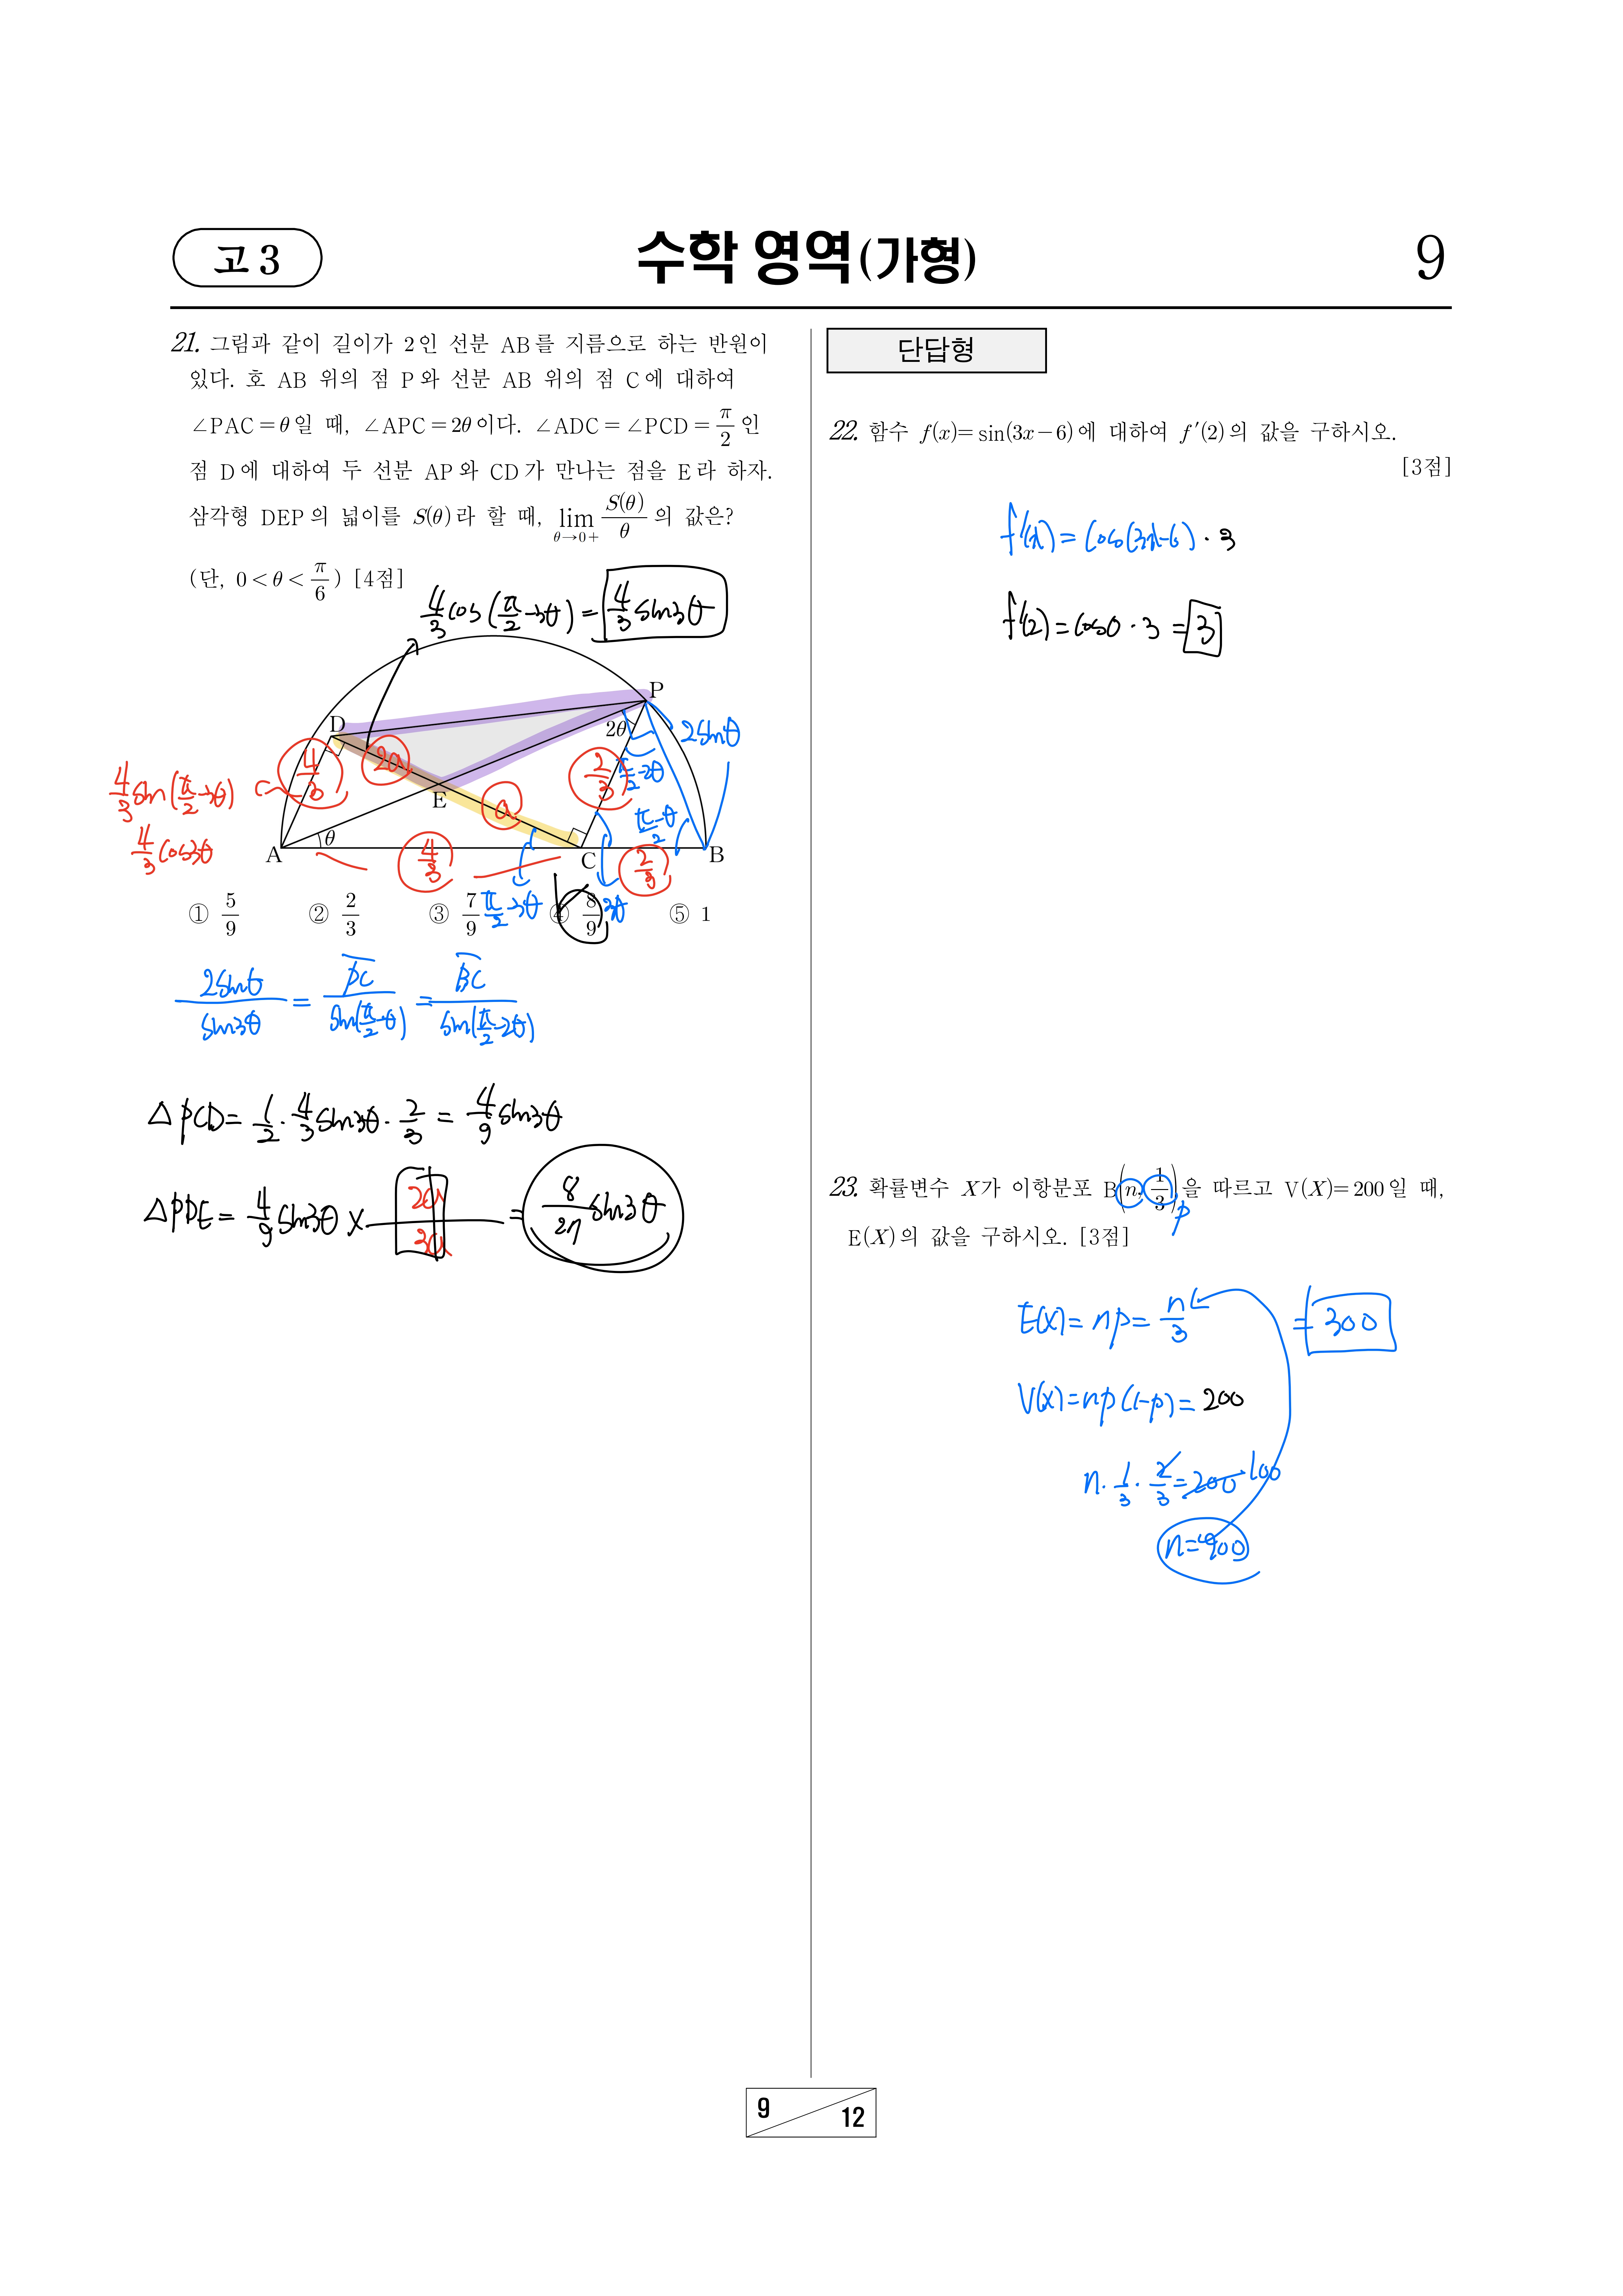 고 3
수학 영역(가형)
9
21. 그림과 같이 길이가 2인 선분 AB를 지름으로 하는 반원이
있다. 호 AB 위의 점 P와 선분 AB 위의 점 C에 대하여
∠PAC = θ일 때, ∠APC = 2θ이다. ∠ADC = ∠PCD = π/2 인
점 D에 대하여 두 선분 AP와 CD가 만나는 점을 E라 하자.
삼각형 DEP의 넓이를 S(θ)라 할 때, lim θ→0+ S(θ)/θ 의 값은?
(단, 0 < θ < π/6) [4점]
4/3 cos(π/2-3θ) = 4/3 sin3θ
P
D
2θ
2sinθ
4/3
2a
2/3
π/2-2θ
4/3 sin(π/2-3θ)
E
a
π/2-θ
4/3 cos3θ
θ
A
4/3
C
2/3
B
① 5/9 ② 2/3 ③ 7/9 ④ 8/9 ⑤ 1
π/2-3θ
3θ
2sinθ/sin3θ = PC/sin(π/2-θ) = BC/sin(π/2-2θ)
△PCD = 1/2 · 4/3 sin3θ · 2/3 = 4/9 sin3θ
△PDE = 4/9 sin3θ × 2a/3a = 8/27 sin3θ
단답형
22. 함수 f(x)= sin(3x-6)에 대하여 f′(2)의 값을 구하시오.
[3점]
f′(x) = cos(3x-6) · 3
f′(2) = cos0 · 3 = 3
23. 확률변수 X가 이항분포 B(n, 1/3)을 따르고 V(X)=200일 때,
p
E(X)의 값을 구하시오. [3점]
E(X) = np = n/3 = 300
V(X) = np(1-p) = 200
n · 1/3 · 2/3 = 200 100
n=900
9
12